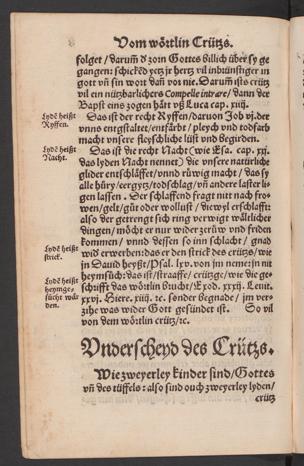 Vom wörtlin Crütz.
folget / darum̄ d zorn Gottes billich über sy ge
gangen: schickēd yetz jr hertz vil inbrünstiger in
gott vn̄ sin wort dan̄ vor nie. Darum̄ ists crütz
vil ein nützbarlichers Compelle intrare / dann der
Bapst eins zogen hāt vß Luca cap. xiiij.
Lydē heißt
Ryffen.
Das ist der recht Ryffen / daruon Job vj. der
vnns entgstaltet / entfärbt / pleych vnd todfarb
macht vnsere fleyschliche lüst vnd Begirden.
Lydē heißt
Nacht.
Das ist die recht Nacht (wie Esa. cap. xxj.
das lyden Nacht nennet) die vnsere natürliche
glider entschläfft / vnnd rüwig macht / das sy
alle hüry / eergytz / todschlag / vn̄ andere laster li-
gen lassen. Der schlaffend fragt nitt nach fro
wen / gelt / gůt oder wollust / diewyl er schlafft:
also der getrengt sich ring verwigt wältlicher
dingen / möcht er nur wider zerůw vnd friden
kommen / vnnd dessen so inn schlacht / gnad
Lydē heißt
strick.
wid erwerben: das er den strick des crütz / wie
jn Dauid heyßt / Psal. lyv. von jm neme: jn nit
Lydē heißt
heymge-
sücht wär
den.
heymsůch: das ist / straaffe / crützge / wie die ge-
schrifft das wörtlin bucht / Exod. xxxij. Leuit.
xxvj. Hiere. xiiij. ꝛc. sonder begnade / jm ver-
zihe was wider Gott gesündet ist. So vil
von dem wörtlin crütz / ꝛc.
Vnderscheyd des Crützs.
Wie zweyerley kinder sind / Gottes
vn̄ des tüffels: also sind ouch zweyerley lyden /
crütz